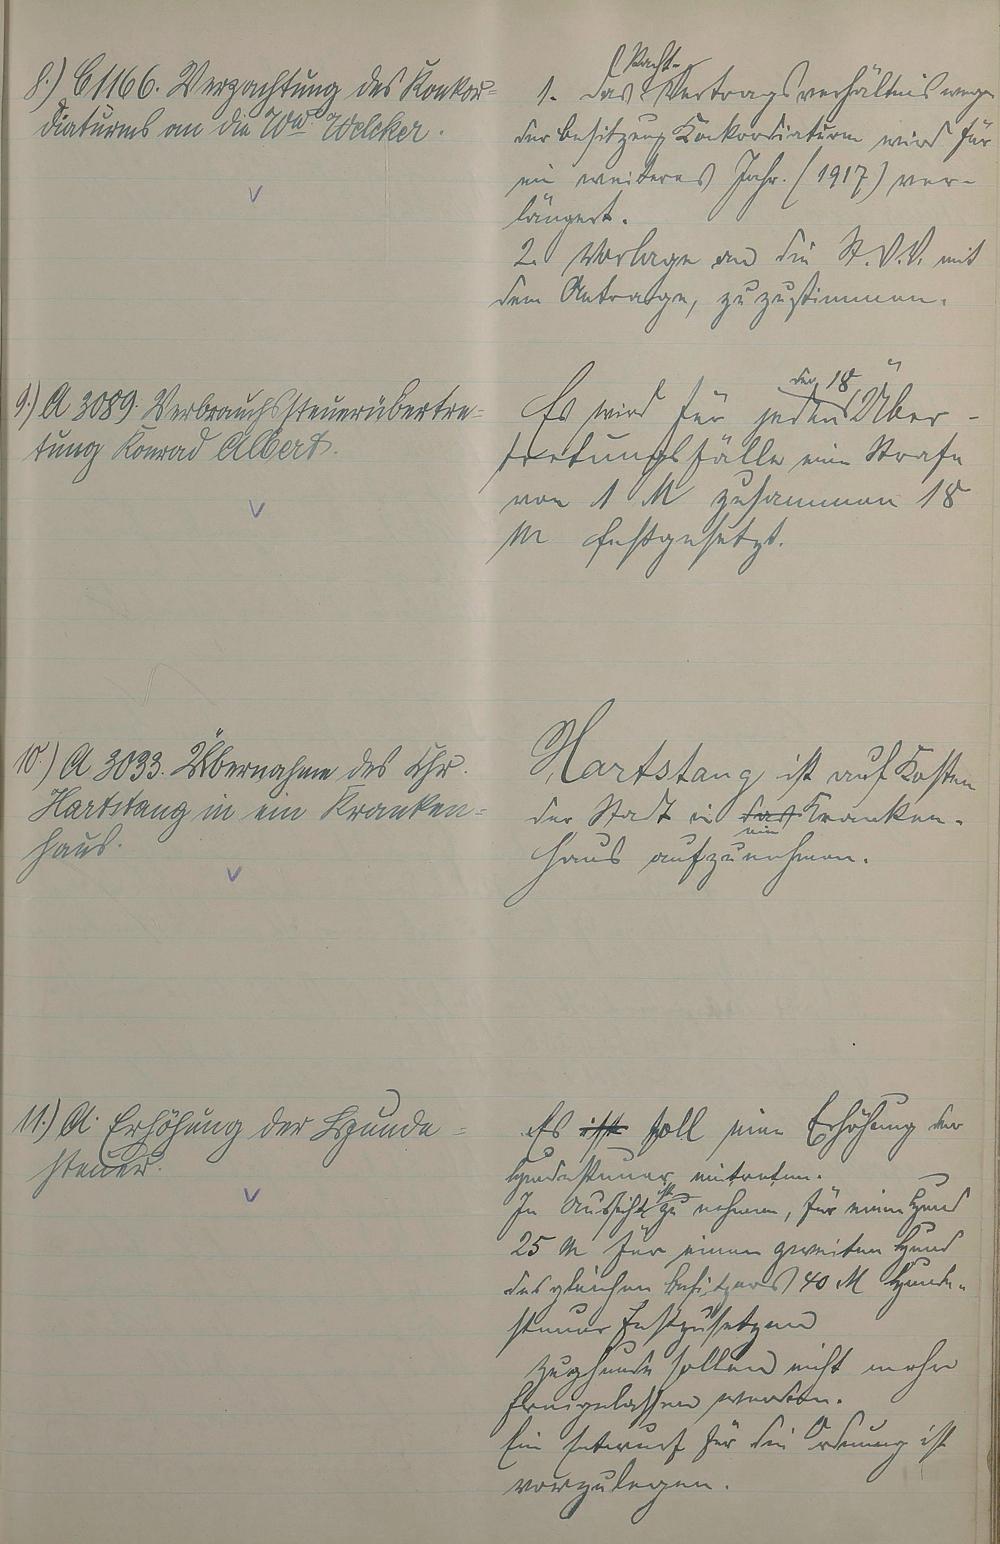 8.) C 1166. Verpachtung des Konkor-
diaturms an die Ww. Welcker.
Pacht-
1. Das Vertragsverhältnis wegen
der Besitzung Konkordiaturm wird für
ein weiteres Jahr. (1917) ver-
längert.
2. Vorlage an die St.V.V. mit
dem Antrage, zuzustimmen.
9.) A 3089. Verbrauchssteuerübertre-
tung Konrad Albert.
der 18
Es wird für jeden Über-
tretungsfälle eine Strafe
von 1 M zusammen 18
M festgesetzt.
10.) A 3033. Übernahme des Chr.
Hartstang in ein Kranken-
haus.
Hartstang ist auf Kosten
der Stadt in das Kranken-
ein
haus aufzunehmen.
11.) A. Erhöhung der Hunde-
steuer.
Es ist soll eine Erhöhung der
Hundesteuer eintreten.
ist
In Aussicht zu nehmen, für einen Hund
25 M für einen zweiten Hund
des gleichen Besitzers 40 M Hunde-
steuer festzusetzen
Zughunde sollen nicht mehr
freigelassen werden.
Ein Entwurf für die Ordnung ist
vorzulegen.